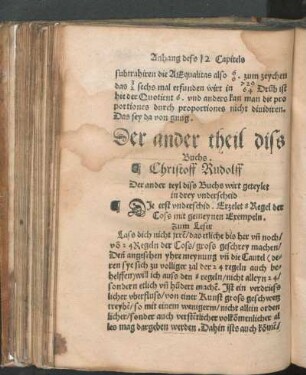 Anhang dess 12 Capitels
subtrahiren die AEqualitas also 6/6. zum zeychen
das sechs mal erfunden würt in Drüb ist
hie der Quotient 6. vnd anders kan man die pro
portiones durch proportiones nicht diuidiren.
Das sey da von gnug.
Der ander theil diss
Buchs.
¶ Christoff Rudolff
Der ander teyl diss Buchs wirt geteylet
in drey vnderscheid
¶ Die erst vnderschid. Erzelet 8 Regel der
Coss mit gemeynen Exempeln.
Zum Leser
Lass dich nicht jrrē/ das etliche bis her vñ noch/
võ 24 Regeln der Coss/ gross geschrey machen/
Deñ angesehen yher meynung vñ die Cautel (de-
ren sye sich zu volliger zal der 24 regeln auch be-
helffen) will ich auss den 8 regeln/ nicht alleyn 24/
sonder etlich vñ hūdert machē. Ist ein verdries-
licher vberfluss/ von einer Kunst gross geschwetz
treybē/ so mit einem wenigern/ nicht allein orden
licher/ sonder auch verstētlicher volkōmenlicher al
les mag dargeben werden. Dahin ists auch kōmē/